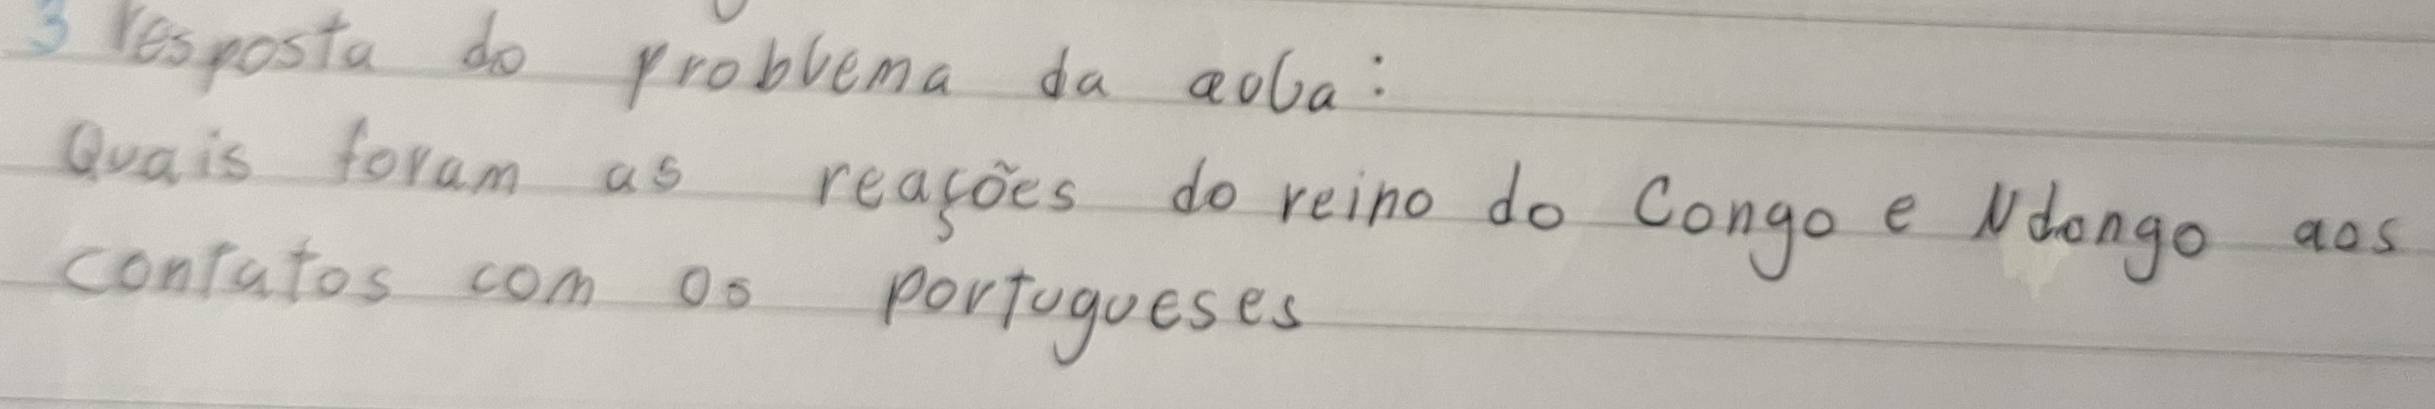 3 resposta do problema da aula:
Quais foram as reações do reino do Congo e Ndongo aos
contatos com os portugueses